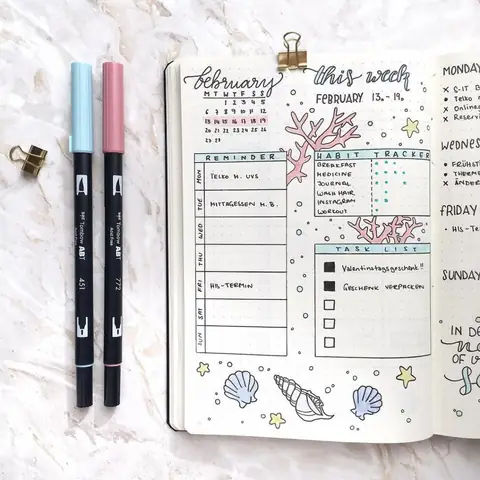 february
M T W T F S S
1 2 3 4 5
6 7 8 9 10 11 12
13 14 15 16 17 18 19
20 21 22 23 24 25 26
27 28
REMINDER
MON TELKO M. UVS
TUE MITTAGESSEN M. B.
WED
THU
FRI HIS-TERMIN
SAT
SUN
this week
FEBRUARY 13.-19.
HABIT TRACKER
BREAKFAST
MEDICINE
JOURNAL
WASH HAIR
INSTAGRAM
WORKOUT
TASK LIST
Valentinstagsgeschenk!!
GESCHENK VERPACKEN
MONDAY
X S-IT B
X TELKO
X ONLINE
X RESERVI
WEDNES
FRÜHST
X THERME
X ÄNDER
FRIDAY
HIS-T
SUNDAY
IN DE
OF
Tombow ABT
451
Tombow ABT
772